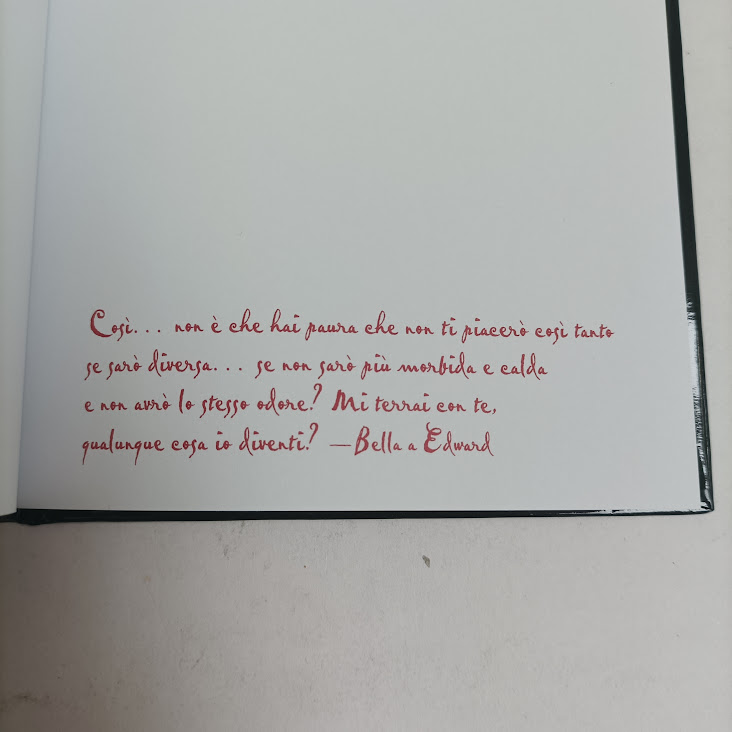 Così... non è che hai paura che non ti piacerò così tanto
se sarò diversa... se non sarò più morbida e calda
e non avrò lo stesso odore? Mi terrai con te,
qualunque cosa io diventi? —Bella a Edward